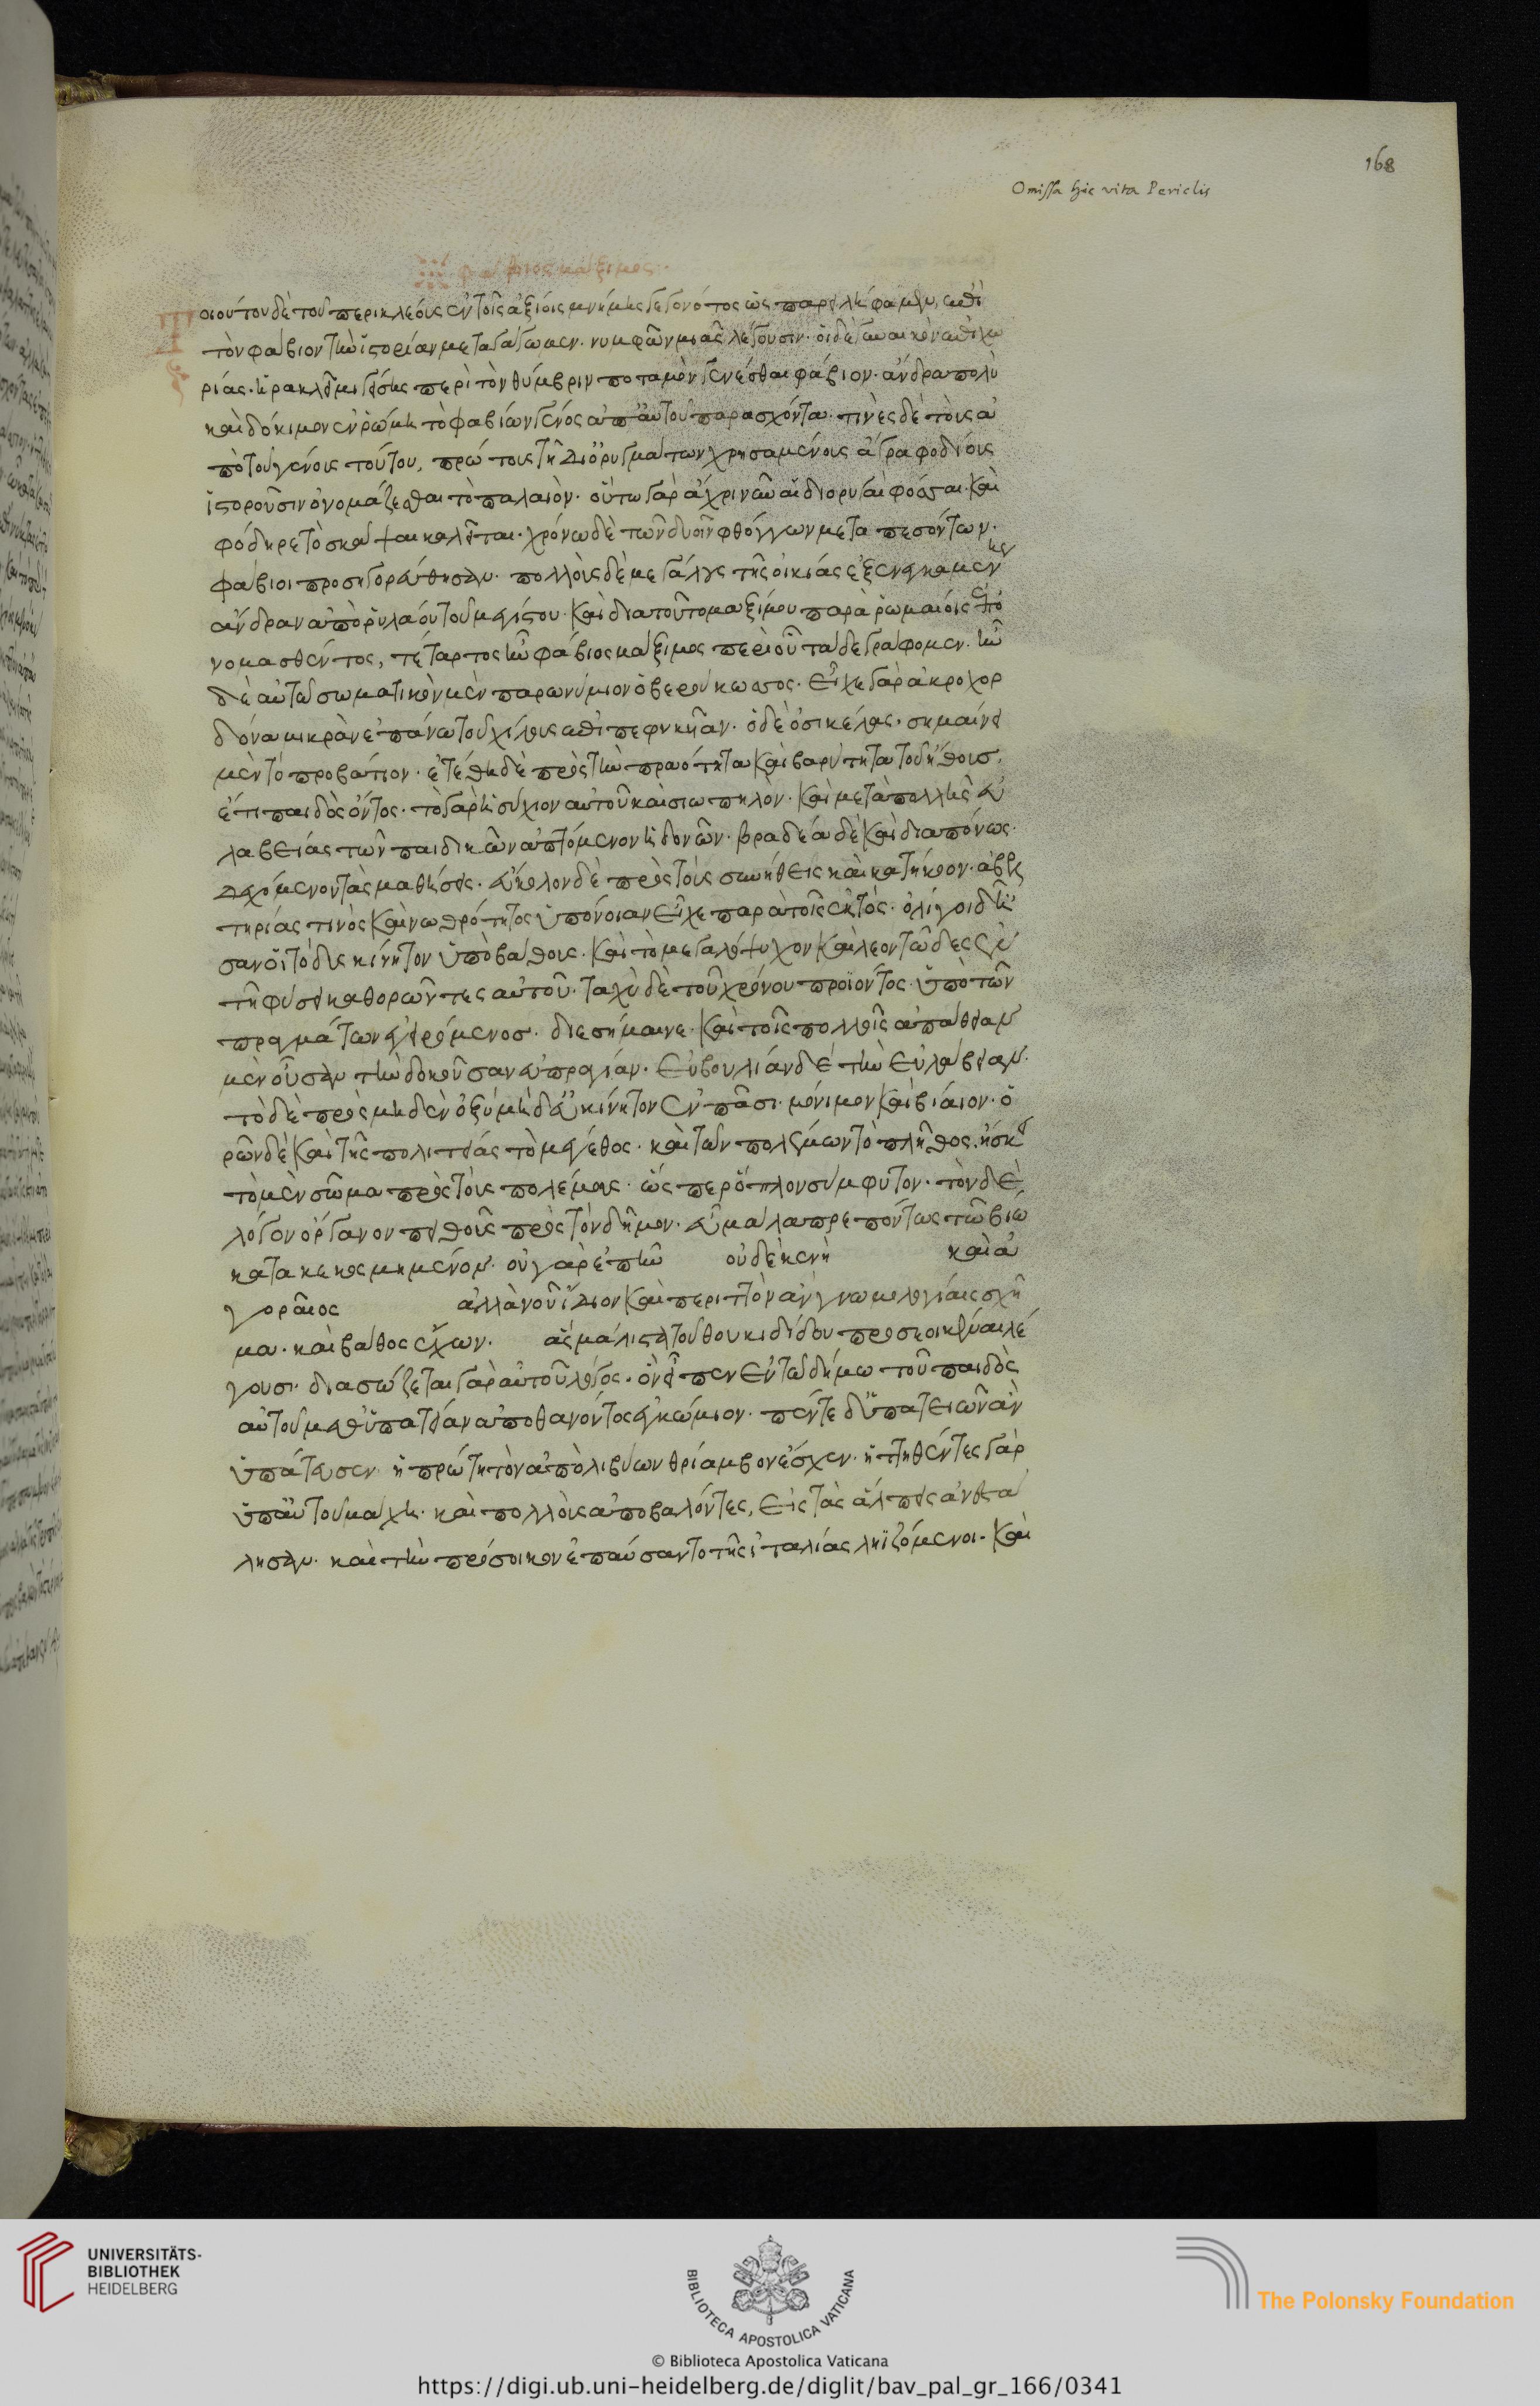 168
Omissa hic vita Periclis
φάβιος μάξιμος.
οιούτου δὲ τοῦ περικλέους ἐν τοῖς ἀξίοις μνήμης γεγονότος ὡς παρειλήφαμεν, ἐπὶ
τὸν φάβιον τὴν ἱστορίαν μεταγάγωμεν. νυμφῶν μιᾶς λέγουσιν. οἱ δὲ γυναικὸς ἐπιχω
ρίας. ἡρακλεῖ μιγείσης περὶ τὸν θύμβριν ποταμὸν γενέσθαι φάβιον. ἄνδρα πολὺ
καὶ δόκιμον ἐν ῥώμη τὸ φαβίων γένος ἀπ' αὐτοῦ παρασχόντα. τινὲς δὲ τοὺς ἀ
πὸ τοῦ γένους τούτου, πρώτους τῆ διορυγμάτων χρησαμένους ἄγρα φοδίους
ἱστοροῦσιν ὀνομάζεσθαι τὸ παλαιόν. οὕτω γὰρ ἄχρι νῦν αἱ διορυγαὶ φόσσαι. καὶ
φόδηρε τὸ σκάψαι καλεῖται. χρόνω δὲ τῶν δυοῖν φθόγγων μεταπεσόντων.
φάβιοι προσηγορεύθησαν. πολλοὺς δὲ μεγάλους τῆς οἰκίας ἐξενεγκαμένης
ἄνδρας ἀπὸ ῥύλλου τοῦ μεγίστου. καὶ διὰ τοῦτο μαξίμου παρὰ ῥωμαίοις ἐπο
νομασθέντος, τέταρτος ἦν φάβιος μάξιμος περὶ οὗ τάδε γράφομεν. ἦν
δὲ αὐτῶ σωματικὸν μὲν παρωνύμιον ὁ βερούκωσος. εἶχε γὰρ ἀκροχορ
δόνα μικρὰν ἐπάνω τοῦ χείλους ἐπιπεφυκυῖαν. ὁ δὲ ὀσικέλας. σημαίνει
μὲν τὸ προβάτιον. ἐτέθη δὲ πρὸς τὴν πραότητα καὶ βαρύτητα τοῦ ἤθους.
ἔτι παιδὸς ὄντος. τὸ γὰρ ἡσύχιον αὐτοῦ καὶ σιωπηλὸν. καὶ μετὰ πολλῆς εὐ
λαβείας τῶν παιδικῶν ἁπτόμενον ἡδονῶν. βραδέα δὲ καὶ διαπόνως
δεχόμενον τὰς μαθήσεις. εὔκολον δὲ πρὸς τοὺς συνήθεις καὶ κατήκοον. ἀβελ
τηρίας τινὸς καὶ νωθρότητος ὑπόνοιαν εἶχε παρὰ τοῖς ἐκτός. ὀλίγοι δ' ἦ
σαν οἱ τὸ δυσκίνητον ὑπὸ βάθους. καὶ τὸ μεγαλόψυχον καὶ λεοντῶδες ἐν
τῆ φύσει καθορῶντες αὐτοῦ. ταχὺ δὲ τοῦ χρόνου προϊόντος. ὑπὸ τῶν
πραγμάτων ἐγειρόμενος. διεσήμαινε. καὶ τοῖς πολλοῖς ἀπάθειαν
μὲν οὖσαν τὴν δοκοῦσαν ἀπραγίαν. εὐβουλίαν δὲ τὴν εὐλάβειαν.
τὸ δὲ πρὸς μηδὲν ὀξὺ μὴδ' εὐκίνητον ἐν πᾶσι. μόνιμον καὶ βίαιον. ὁ
ρῶν δὲ καὶ τῆς πολιτείας τὸ μέγεθος. καὶ τῶν πολέμων τὸ πλῆθος. ἤσκει
τὸ μὲν σῶμα πρὸς τοὺς πολέμους. ὥσπερ ὅπλον σύμφυτον. τὸν δὲ
λόγον ὄργανον πειθοῦς πρὸς τὸν δῆμον. εὖ μάλα πρεπόντως τῶ βίω
κατακεκοσμημένον. οὐ γὰρ ἐπῆν οὐδὲ κενὴ καὶ ἀ
γοραῖος ἀλλὰ νοῦν ἴδιον καὶ περιττὸν ἐν γνωμολογίαις σχῆ
μα. καὶ βάθος ἔχων. ἃς μάλιστα τοῦ θουκιδίδου προσεοικέναι λέ
γουσι. διασώζεται γὰρ αὐτοῦ λόγος. ὃν εἶπεν ἐν τῶ δήμω τοῦ παιδὸς
αὐτοῦ μεθ' ὑπατείαν ἀποθανόντος ἐγκώμιον. πέντε δ' ὑπατειῶν ἃς
ὑπάτευσεν. ἡ πρώτη τὸν ἀπὸ λιβύων θρίαμβον ἔσχεν. ἡττηθέντες γὰρ
ὑπ' αὐτοῦ μάχη. καὶ πολλοὺς ἀποβαλόντες, εἰς τὰς ἄλπεις ἀνεστά
λησαν. καὶ τὴν πρόσοικον ἐπαύσαντο τῆς ἰταλίας ληϊζόμενοι. καὶ
UNIVERSITÄTS-
BIBLIOTHEK
HEIDELBERG
BIBLIOTECA APOSTOLICA VATICANA
© Biblioteca Apostolica Vaticana
The Polonsky Foundation
https://digi.ub.uni-heidelberg.de/diglit/bav_pal_gr_166/0341